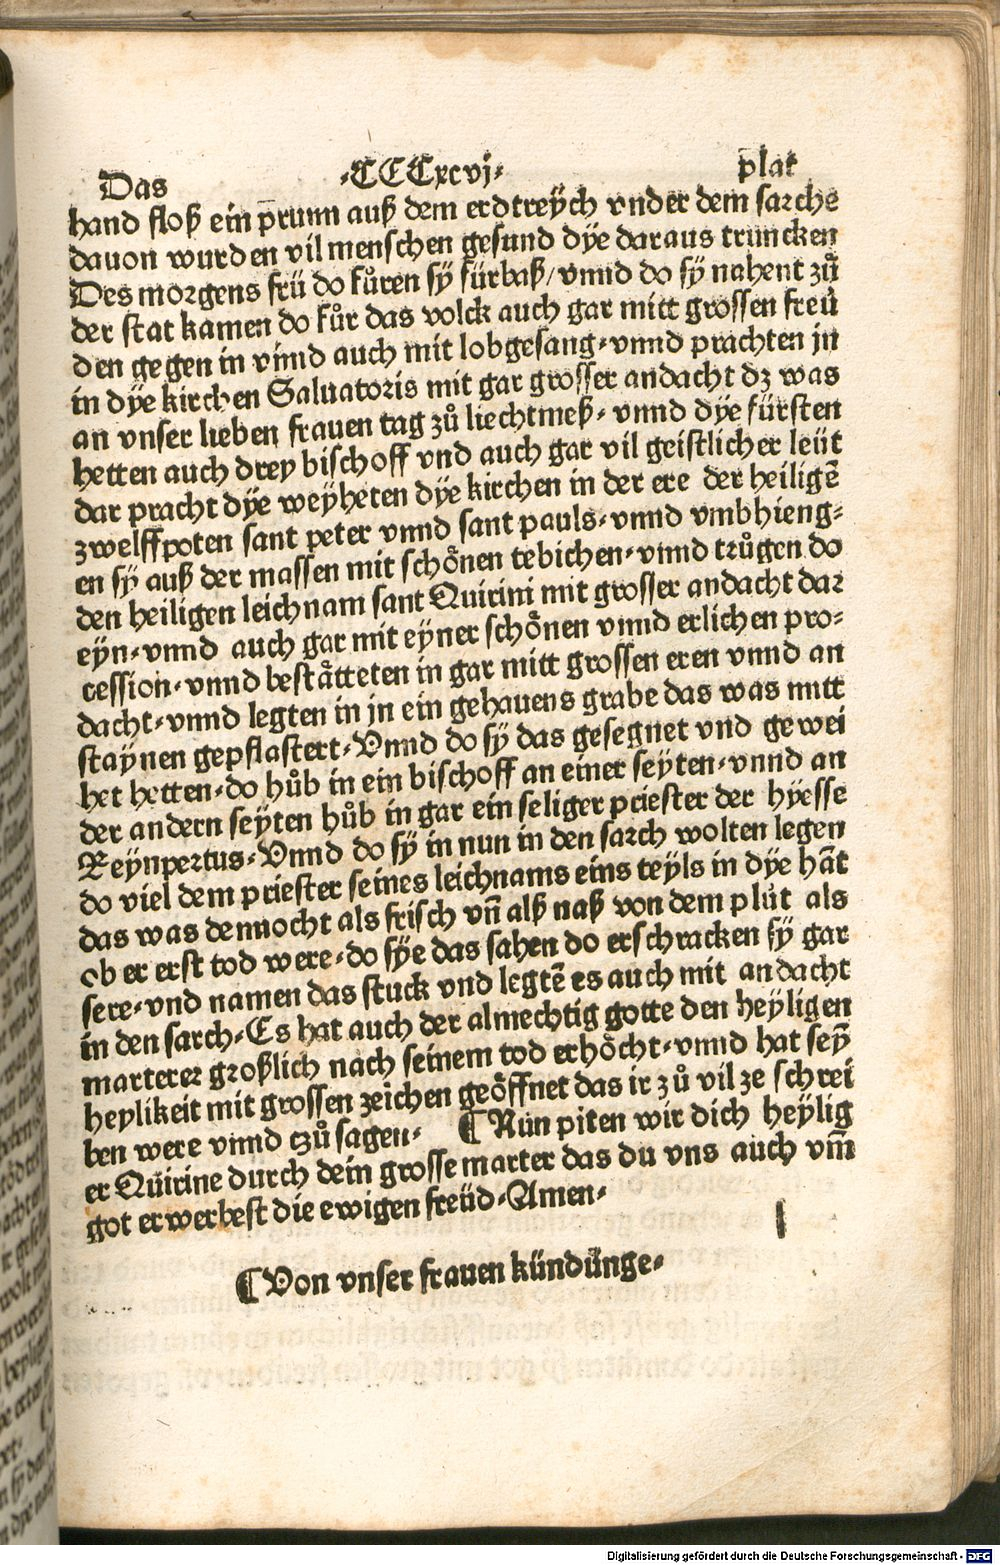 Das ·CCCxcvj· plat
hand floß ein prunn auß dem erdtreÿch vnder dem sarche
dauon wurden vil menschen gesund dÿe daraus truncken
Des morgens frü do fůren sÿ fürbaß/ vnnd do sÿ nahent zů
der stat kamen do fůr das volck auch gar mitt grossen freü
den gegen in vnnd auch mit lobgesang· vnnd prachten jn
in dÿe kirchen Saluatoris mit gar grosser andacht dz was
an vnser lieben frauen tag zů liechtmeß· vnnd dÿe fürsten
hetten auch drey bischoff vnd auch gar vil geistlicher leüt
dar pracht dÿe weÿheten dÿe kirchen in der ere der heiligē
zwelffpoten sant peter vnnd sant pauls· vnnd vmbhieng⸗
en sÿ auß der massen mit schönen tebichen· vnnd trůgen do
den heiligen leichnam sant Quirini mit grosser andacht dar
eÿn· vnnd auch gar mit eÿner schönen vnnd erlichen pro⸗
cession· vnnd bestätteten in gar mitt grossen eren vnnd an
dacht· vnnd legten in jn ein gehauens grabe das was mitt
staÿnen gepflastert· Vnnd do sÿ das gesegnet vnd gewei
het hetten· do hůb in ein bischoff an einer seÿten· vnnd an
der andern seÿten hůb in gar ein seliger priester der hÿesse
Reÿnpertus· Vnnd do sÿ in nun in den sarch wolten legen
do viel dem priester seines leichnams eins teÿls in dÿe hāt
das was dennocht als frisch vñ alß naß von dem plůt als
ob er erst tod were· do sÿe das sahen do erschracken sÿ gar
sere· vnd namen das stuck vnd legtē es auch mit andacht
in den sarch· Es hat auch der almechtig gotte den heÿligen
marterer großlich nach seinem tod erhöcht· vnnd hat seÿ
heylikeit mit grossen zeichen geöffnet das ir zů vil ze schrei
ben were vnnd czů sagen· ¶ Nun piten wir dich heÿlig
er Quirine durch dein grosse marter das du vns auch vm̄
got erwerbest die ewigen freüd· Amen·
¶ Von vnser frauen kündünge·
Digitalisierung gefördert durch die Deutsche Forschungsgemeinschaft - DFG